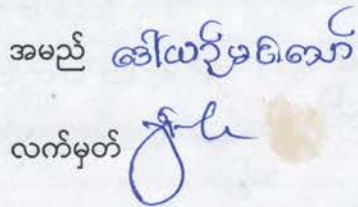 အမည် ဒေါ်ယဉ်မင်းသော်
လက်မှတ်